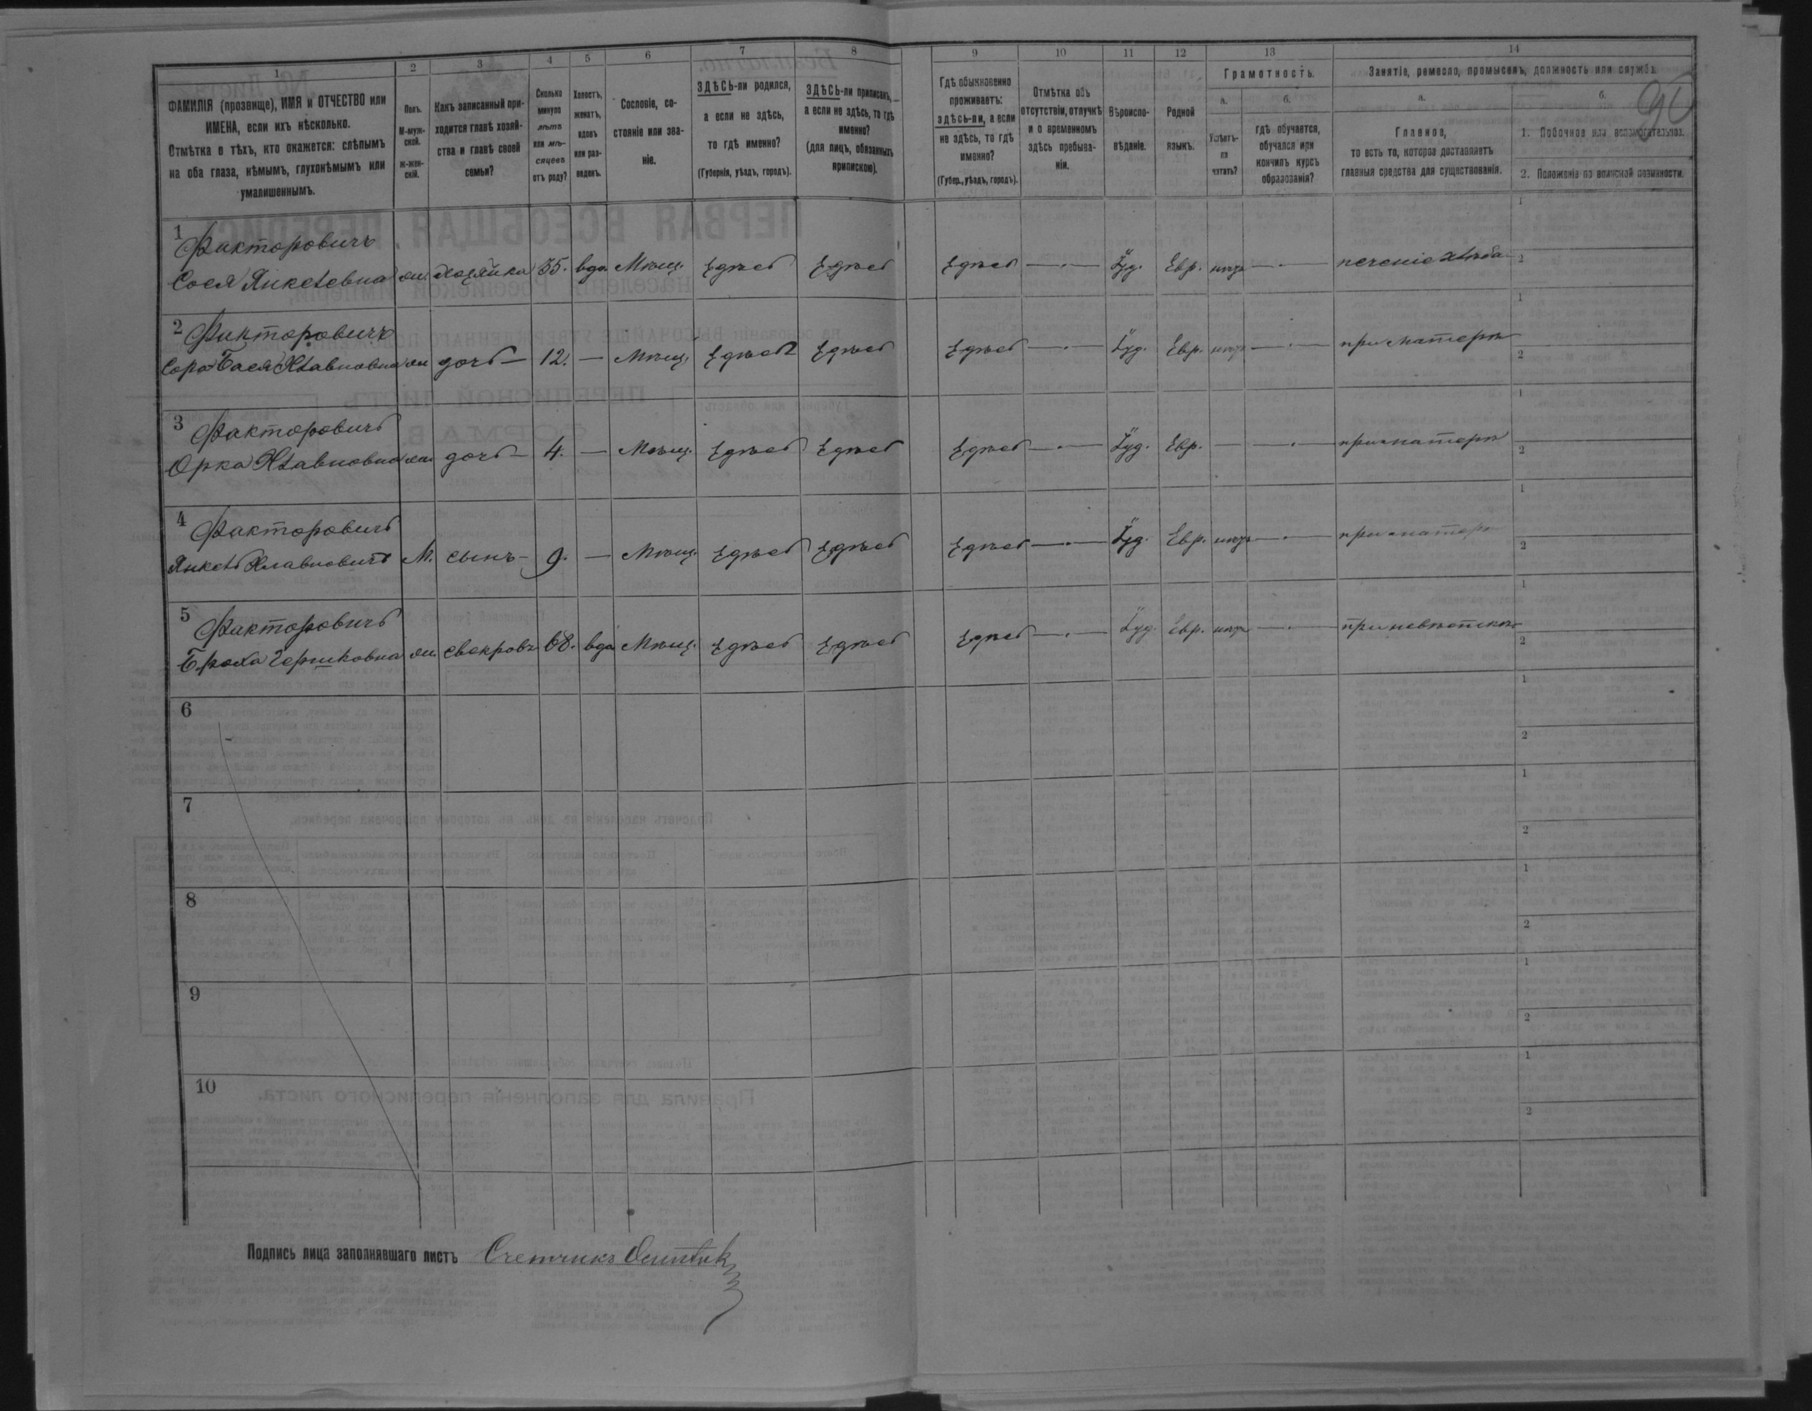 1 2 3 4 5 6 7 8 9 10 11 12 13 14
ФАМИЛІЯ (прозвище), ИМЯ и ОТЧЕСТВО или
ИМЕНА, если ихъ нѣсколько.
Отмѣтка о тѣхъ, кто окажется: слѣпымъ
на оба глаза, нѣмымъ, глухонѣмымъ или
умалишеннымъ.
Полъ.
М-муж-
ской.
Ж-жен-
скій.
Какъ записанный при-
ходится главѣ хозяй-
ства и главѣ своей
семьи?
Сколько
минуло
лѣтъ
или мѣ-
сяцевъ
отъ роду?
Холостъ,
женатъ,
вдовъ
или раз-
веденъ.
Сословіе, со-
стояніе или зва-
ніе.
ЗДѢСЬ-ли родился,
а если не здѣсь,
то гдѣ именно?
(Губернія, уѣздъ, городъ).
ЗДѢСЬ-ли приписанъ,
а если не здѣсь, то гдѣ
именно?
(для лицъ, обязанныхъ
припискою).
Гдѣ обыкновенно
проживаетъ:
здѣсь-ли, а если
не здѣсь, то гдѣ
именно?
(Губер., уѣздъ, городъ).
Отмѣтка объ
отсутствіи, отлучкѣ
и о временномъ
здѣсь пребыва-
ніи.
Вѣроиспо-
вѣданіе.
Родной
языкъ.
Грамотность.
а.
Умѣетъ-
ли
читать?
б.
гдѣ обучается,
обучался или
кончилъ курсъ
образованія?
Занятіе, ремесло, промыселъ, должность или служба.
а.
Главное,
то есть то, которое доставляетъ
главныя средства для существованія.
б.
1. Побочное или вспомогательное.
2. Положеніе по воинской повинности.
90
1 Факторовичъ
Сося Янкелевна ж. хозяйка 35. вда Мѣщ. Здѣсь Здѣсь Здѣсь — Іуд. Евр. — печеніе хлѣба
2 Факторовичъ
Сора Бася Хлавновна ж. дочь — 12. — Мѣщ. Здѣсь Здѣсь Здѣсь — Іуд. Евр. — при матери
3 Факторовичъ
Орка Хлавновна ж. дочь — 4. — Мѣщ. Здѣсь Здѣсь Здѣсь — Іуд. Евр. — — при матери
4 Факторовичъ
Янкель Хлавновичъ М. сынъ — 9. — Мѣщ. Здѣсь Здѣсь Здѣсь — Іуд. Евр. — при матери
5 Факторовичъ
Броха Гершковна ж. свекровь 68. вда Мѣщ. Здѣсь Здѣсь Здѣсь — Іуд. Евр. — при невѣсткѣ
6
7
8
9
10
Подпись лица заполнявшаго листъ Счетчикъ